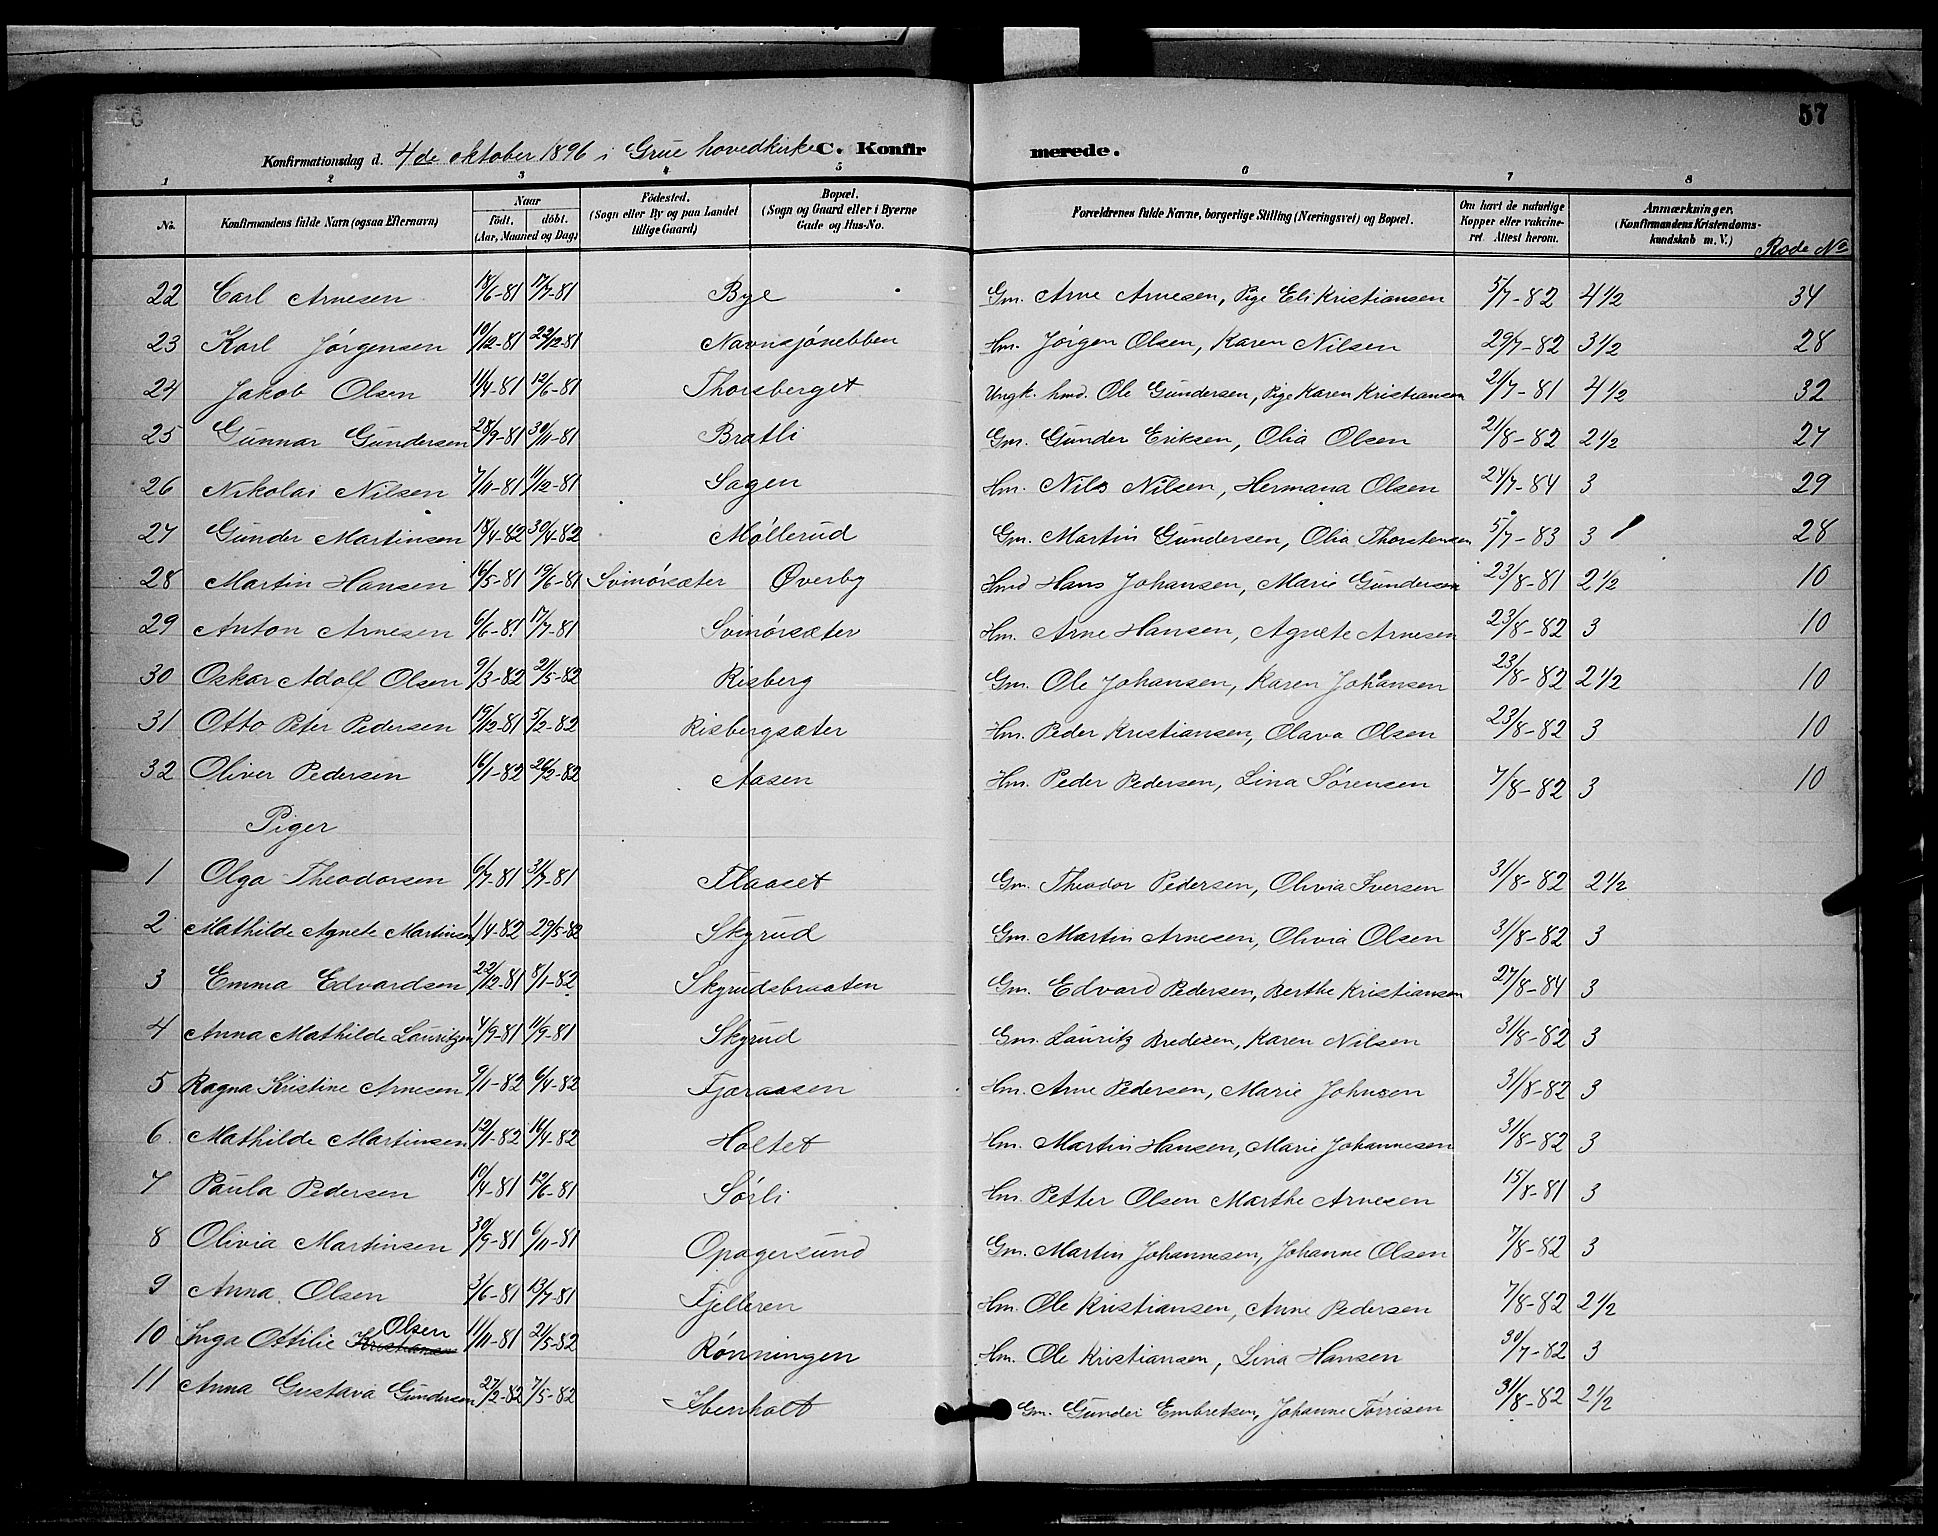 57
Konfirmationsdag d. 4de oktober 1896 i Grue hovedkirke C. Konfirmerede.
1 2 3 4 5 6 7 8
No. Konfirmandens fulde Navn (ogsaa Efternavn) Naar født, døbt. (Aar, Maaned og Dag) Fødested. (Sogn eller By og paa Landet tillige Gaard) Bopæl. (Sogn og Gaard eller i Byerne Gade og Hus-No. Forældrenes fulde Navne, borgerlige Stilling (Næringsvei) og Bopæl. Om havt de naturlige Kopper eller vakcineret. Attest herom. Anmærkninger. (Konfirmandens Kristendomskundskab m. V.) Rode No
22 Carl Arnesen 18/6-81 17/7-81 Bye Gm. Arne Arnesen, Pige Eli Kristiansen 5/7-82 4 1/2 34
23 Karl Jørgensen 10/12-81 22/12-81 Navnsjønebben Hm. Jørgen Olsen, Karen Nilsen 29/7-82 3 1/2 28
24 Jakob Olsen 11/4-81 12/6-81 Thorsberget Ungk. hmd. Ole Gundersen, Pige Karen Kristiansen 21/7-81 4 1/2 32
25 Gunnar Gundersen 28/9-81 30/11-81 Bratli Gm. Gunder Eriksen, Olia Olsen 21/8-82 2 1/2 27
26 Nikolai Nilsen 7/11-81 11/12-81 Sagen Hm. Nils Nilsen, Hermana Olsen 24/7-84 3 29
27 Gunder Martinsen 18/4-82 30/4-82 Møllerud Gm. Martin Gundersen, Olia Thorstensen 5/7-83 3 28
28 Martin Hansen 16/5-81 19/6-81 Svinørsæter Øverby Hmd Hans Johansen, Marie Gundersen 23/8-81 2 1/2 10
29 Anton Arnesen 6/6-81 17/7-81 Svinørsæter Hm. Arne Hansen, Agnete Arnesen 23/8-82 3 10
30 Oskar Adolf Olsen 9/3-82 21/5-82 Risberg Gm. Ole Johansen, Karen Johansen 23/8-82 2 1/2 10
31 Otto Peter Pedersen 19/12-81 5/2-82 Risbergsæter Hm. Peder Kristiansen, Olava Olsen 23/8-82 3 10
32 Oliver Pedersen 16/1-82 26/2-82 Aasen Hm. Peder Pedersen, Lina Sørensen 7/8-82 3 10
Piger
1 Olga Theodorsen 6/7-81 31/7-81 Flaaset Gm. Theodor Pedersen, Olivia Iversen 31/8-82 2 1/2
2 Mathilde Agnete Martinsen 1/4-82 29/5-82 Skyrud Gm. Martin Arnesen, Olivia Olsen 31/8-82 3
3 Emma Edvardsen 22/12-81 8/1-82 Skyrudsbraaten Gm. Edvard Pedersen, Berthe Kristiansen 27/8-84 3
4 Anna Mathilde Lauritzen 4/9-81 11/9-81 Skyrud Gm. Lauritz Bredesen, Karen Nilsen 31/8-82 3
5 Ragna Kristine Arnesen 9/1-82 6/4-82 Fjæraasen Hm. Arne Pedersen, Marie Johnsen 31/8-82 3
6. Mathilde Martinsen 12/1-82 16/4-82 Holtet Hm. Martin Hansen, Marie Johannesen 31/8-82 3
7 Paula Pedersen 10/4-81 12/6-81 Sørli Hm. Petter Olsen Marthe Arnesen 15/8-81 3
8 Olivia Martinsen 30/9-81 6/11-81 Opagersund Gm. Martin Johannesen, Johanne Olsen 7/8-82 3
9 Anna Olsen 3/6-81 13/7-81 Fjelleren Hm. Ole Kristiansen, Anne Pedersen 7/8-82 2 1/2
10 Inga Ottilie Kristiansen Olsen 11/11-81 21/5-82 Rønningen Hm. Ole Kristiansen, Lina Hansen 30/7-82 3
11 Anna Gustava Gundersen 27/2-82 7/5-82 Ibenholt Gm. Gunder Embretsen, Johanne Tørrisen 31/8-82 2 1/2